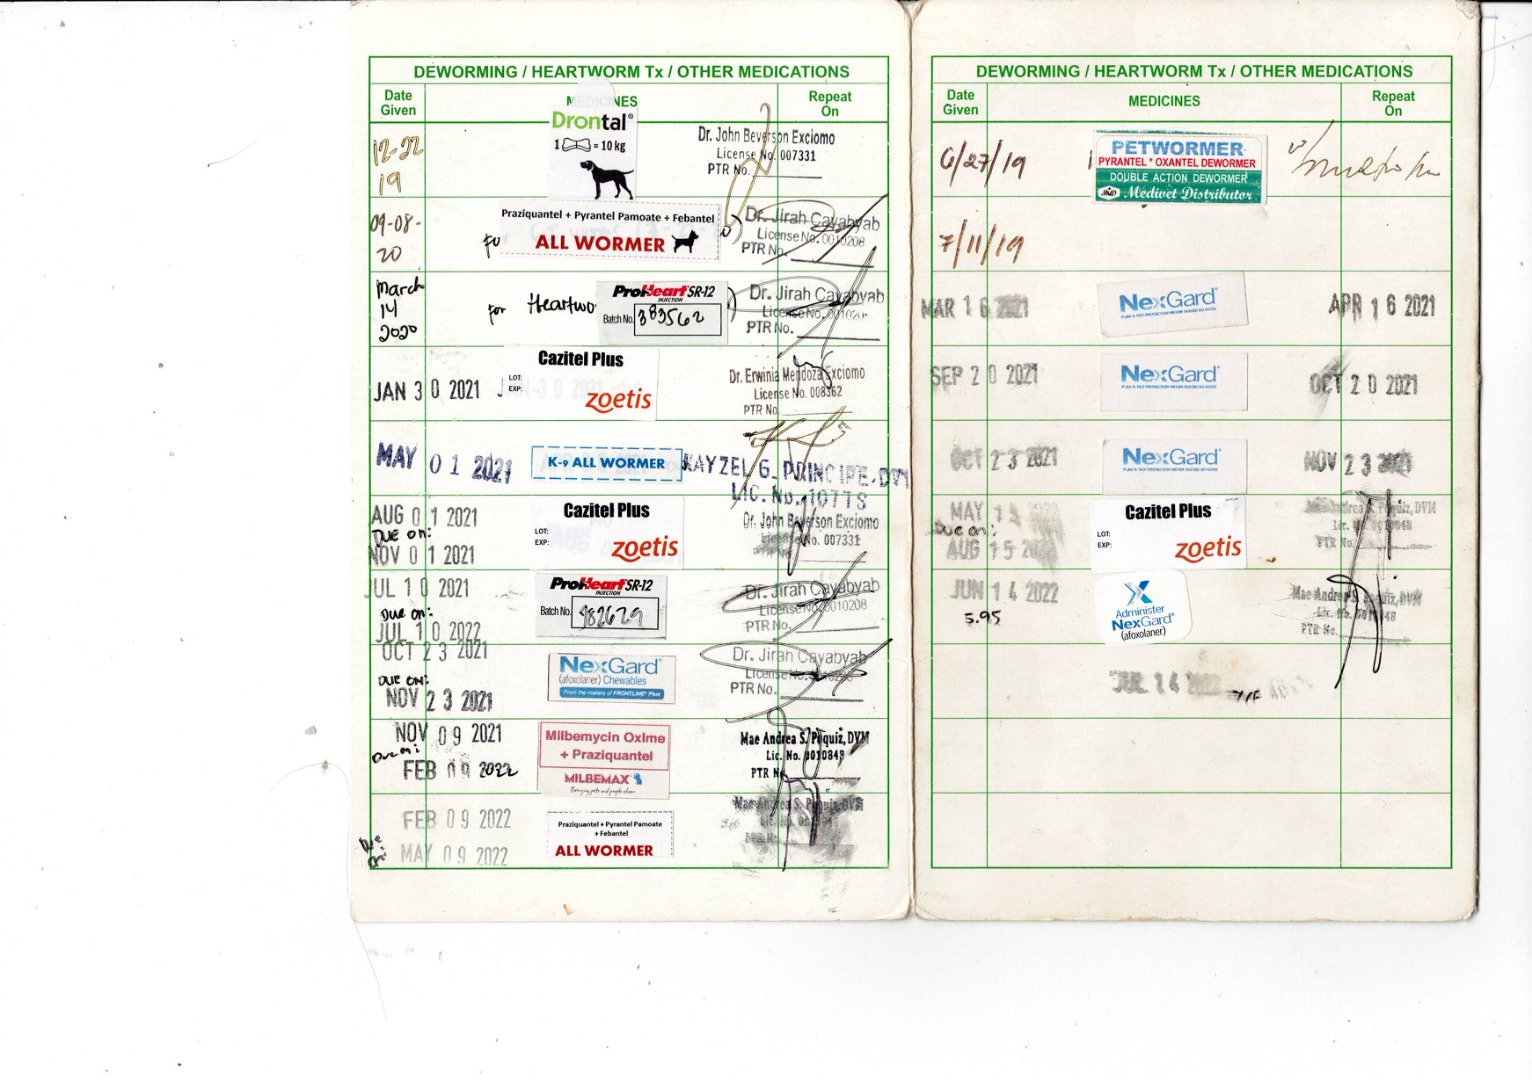 DEWORMING / HEARTWORM Tx / OTHER MEDICATIONS
Date Given
MEDICINES
Repeat On
12-22
19
Drontal®
1 = 10 kg
Dr. John Beverson Exciomo
License No. 007331
PTR No.
09-08-
20
Praziquantel + Pyrantel Pamoate + Febantel
ALL WORMER
Dr. Jirah Cayabyab
License No. 0010208
PTR No.
March
14
2020
For Heartwo
ProHeart SR-12
INJECTION
Batch No. 383562
Dr. Jirah Cayabyab
License No.
PTR No.
JAN 30 2021
Cazitel Plus
LOT:
EXP:
zoetis
Dr. Erwinia Mendoza Exciomo
License No. 008362
PTR No.
MAY 01 2021
K-9 ALL WORMER
KAYZEL G. PRINCIPE, DVM
LIC. No. 10778
AUG 01 2021
Due on:
NOV 01 2021
Cazitel Plus
LOT:
EXP:
zoetis
Dr. John Beverson Exciomo
License No. 007331
JUL 10 2021
Due on:
JUL 10 2022
ProHeart SR-12
INJECTION
Batch No. 382629
Dr. Jirah Cayabyab
License No. 0010208
PTR No.
OCT 23 2021
DUE ON:
NOV 23 2021
NexGard®
(afoxolaner) Chewables
From the makers of FRONTLINE® Plus
Dr. Jirah Cayabyab
License No.
PTR No.
NOV 09 2021
Due on:
FEB 09 2022
Milbemycin Oxime
+ Praziquantel
MILBEMAX
Mae Andrea S. Pequiz, DVM
Lic. No. 0010848
PTR No
FEB 09 2022
MAY 09 2022
Praziquantel + Pyrantel Pamoate
+ Febantel
ALL WORMER
Mae Andrea S. Pequiz, DVM
DEWORMING / HEARTWORM Tx / OTHER MEDICATIONS
Date Given
MEDICINES
Repeat On
6/27/19
PETWORMER
PYRANTEL * OXANTEL DEWORMER
DOUBLE ACTION DEWORMER
Medivet Distributor
7/11/19
MAR 16 2021
NexGard®
APR 16 2021
SEP 20 2021
NexGard®
OCT 20 2021
OCT 23 2021
NexGard®
NOV 23 2021
MAY
Due on:
AUG 15
Cazitel Plus
LOT:
EXP:
zoetis
PTR No.
JUN 14 2022
5.95
Administer
NexGard®
(afoxolaner)
Mae Andrea S. Pequiz, DVM
PTR No.
JUL 14